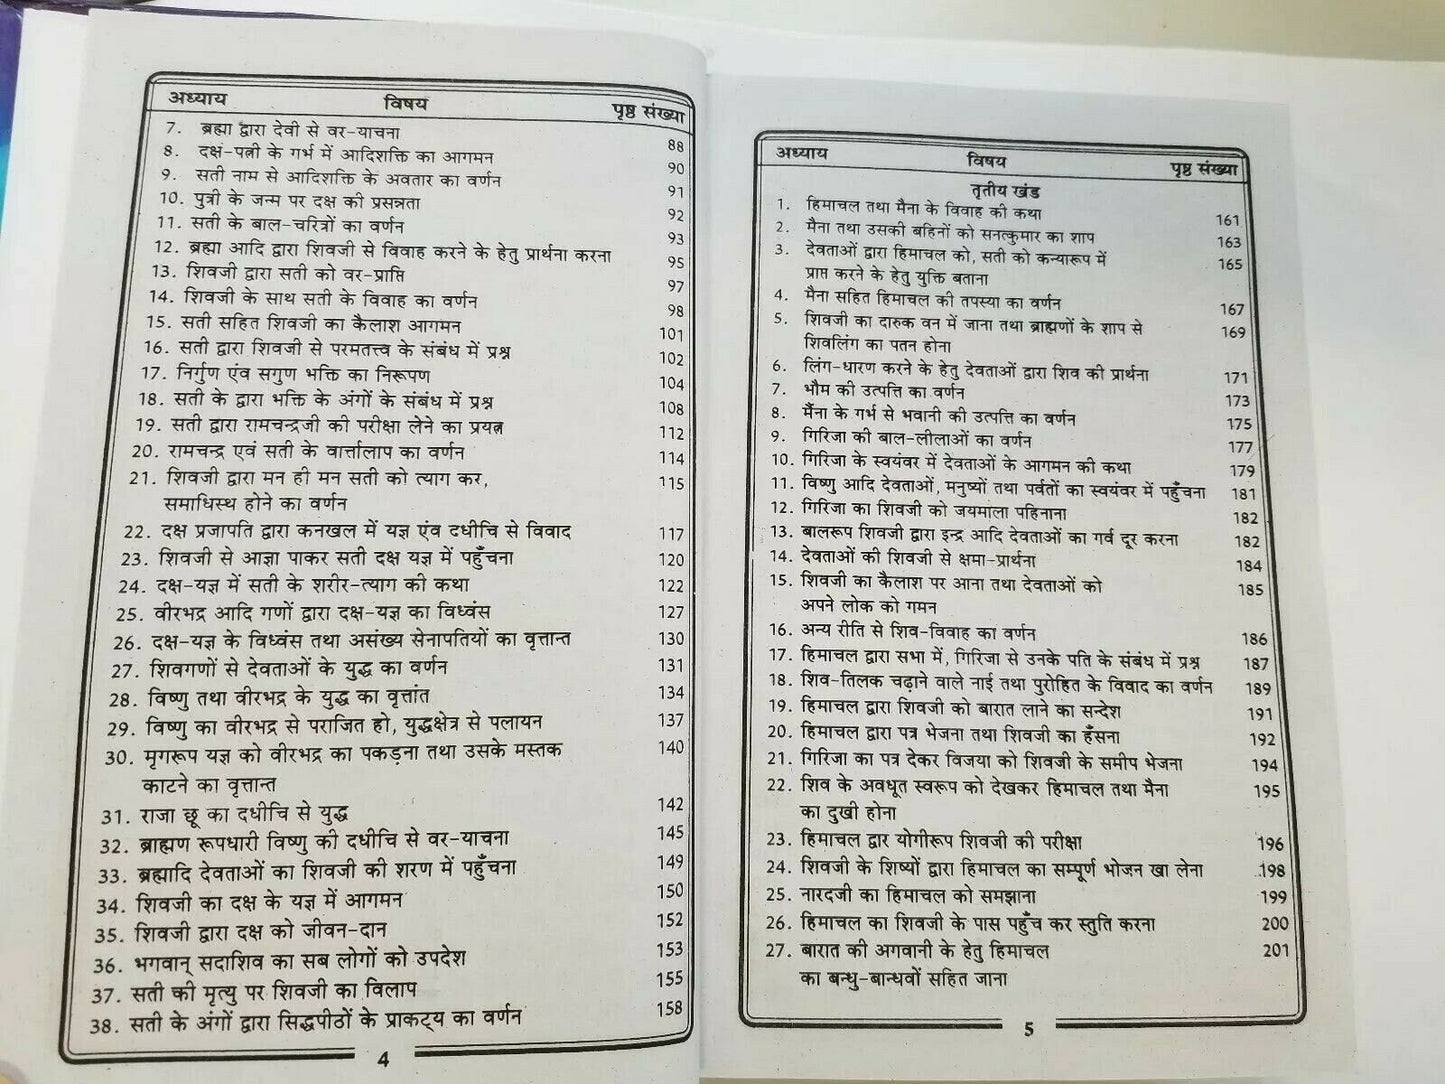 अध्याय विषय पृष्ठ संख्या
7. ब्रह्मा द्वारा देवी से वर-याचना 88
8. दक्ष-पत्नी के गर्भ में आदिशक्ति का आगमन 90
9. सती नाम से आदिशक्ति के अवतार का वर्णन 91
10. पुत्री के जन्म पर दक्ष की प्रसन्नता 92
11. सती के बाल-चरित्रों का वर्णन 93
12. ब्रह्मा आदि द्वारा शिवजी से विवाह करने के हेतु प्रार्थना करना 95
13. शिवजी द्वारा सती को वर-प्राप्ति 97
14. शिवजी के साथ सती के विवाह का वर्णन 98
15. सती सहित शिवजी का कैलाश आगमन 101
16. सती द्वारा शिवजी से परमतत्त्व के संबंध में प्रश्न 102
17. निर्गुण एंव सगुण भक्ति का निरूपण 104
18. सती के द्वारा भक्ति के अंगों के संबंध में प्रश्न 108
19. सती द्वारा रामचन्द्रजी की परीक्षा लेने का प्रयत्न 112
20. रामचन्द्र एवं सती के वार्त्तालाप का वर्णन 114
21. शिवजी द्वारा मन ही मन सती को त्याग कर, 115
समाधिस्थ होने का वर्णन
22. दक्ष प्रजापति द्वारा कनखल में यज्ञ एंव दधीचि से विवाद 117
23. शिवजी से आज्ञा पाकर सती दक्ष यज्ञ में पहुँचना 120
24. दक्ष-यज्ञ में सती के शरीर-त्याग की कथा 122
25. वीरभद्र आदि गणों द्वारा दक्ष-यज्ञ का विध्वंस 127
26. दक्ष-यज्ञ के विध्वंस तथा असंख्य सेनापतियों का वृत्तान्त 130
27. शिवगणों से देवताओं के युद्ध का वर्णन 131
28. विष्णु तथा वीरभद्र के युद्ध का वृत्तांत 134
29. विष्णु का वीरभद्र से पराजित हो, युद्धक्षेत्र से पलायन 137
30. मृगरूप यज्ञ को वीरभद्र का पकड़ना तथा उसके मस्तक 140
काटने का वृत्तान्त
31. राजा छू का दधीचि से युद्ध 142
32. ब्राह्मण रूपधारी विष्णु की दधीचि से वर-याचना 145
33. ब्रह्मादि देवताओं का शिवजी की शरण में पहुँचना 149
34. शिवजी का दक्ष के यज्ञ में आगमन 150
35. शिवजी द्वारा दक्ष को जीवन-दान 152
36. भगवान् सदाशिव का सब लोगों को उपदेश 153
37. सती की मृत्यु पर शिवजी का विलाप 155
38. सती के अंगों द्वारा सिद्धपीठों के प्राकट्य का वर्णन 158
4
अध्याय विषय पृष्ठ संख्या
तृतीय खंड
1. हिमाचल तथा मैना के विवाह की कथा 161
2. मैना तथा उसकी बहिनों को सनत्कुमार का शाप 163
3. देवताओं द्वारा हिमाचल को, सती को कन्यारूप में 165
प्राप्त करने के हेतु युक्ति बताना
4. मैना सहित हिमाचल की तपस्या का वर्णन 167
5. शिवजी का दारुक वन में जाना तथा ब्राह्मणों के शाप से 169
शिवलिंग का पतन होना
6. लिंग-धारण करने के हेतु देवताओं द्वारा शिव की प्रार्थना 171
7. भौम की उत्पत्ति का वर्णन 173
8. मैंना के गर्भ से भवानी की उत्पत्ति का वर्णन 175
9. गिरिजा की बाल-लीलाओं का वर्णन 177
10. गिरिजा के स्वयंवर में देवताओं के आगमन की कथा 179
11. विष्णु आदि देवताओं, मनुष्यों तथा पर्वतों का स्वयंवर में पहुँचना 181
12. गिरिजा का शिवजी को जयमाला पहिनाना 182
13. बालरूप शिवजी द्वारा इन्द्र आदि देवताओं का गर्व दूर करना 182
14. देवताओं की शिवजी से क्षमा-प्रार्थना 184
15. शिवजी का कैलाश पर आना तथा देवताओं को 185
अपने लोक को गमन
16. अन्य रीति से शिव-विवाह का वर्णन 186
17. हिमाचल द्वारा सभा में, गिरिजा से उनके पति के संबंध में प्रश्न 187
18. शिव-तिलक चढ़ाने वाले नाई तथा पुरोहित के विवाद का वर्णन 189
19. हिमाचल द्वारा शिवजी को बारात लाने का सन्देश 191
20. हिमाचल द्वारा पत्र भेजना तथा शिवजी का हँसना 192
21. गिरिजा का पत्र देकर विजया को शिवजी के समीप भेजना 194
22. शिव के अवधूत स्वरूप को देखकर हिमाचल तथा मैना 195
का दुखी होना
23. हिमाचल द्वार योगीरूप शिवजी की परीक्षा 196
24. शिवजी के शिष्यों द्वारा हिमाचल का सम्पूर्ण भोजन खा लेना 198
25. नारदजी का हिमाचल को समझाना 199
26. हिमाचल का शिवजी के पास पहुँच कर स्तुति करना 200
27. बारात की अगवानी के हेतु हिमाचल 201
का बन्धु-बान्धवों सहित जाना
5